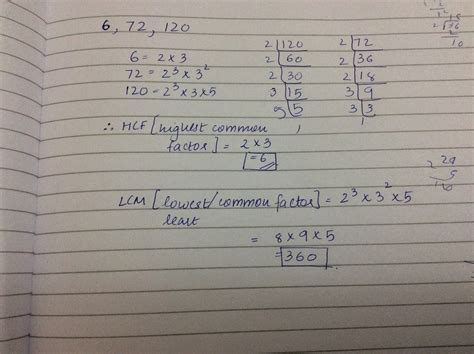 6, 72, 120
6 = 2 × 3
72 = 2³ × 3²
120 = 2³ × 3 × 5
2 | 120
2 | 60
2 | 30
3 | 15
5 | 5
1
2 | 72
2 | 36
2 | 18
3 | 9
3 | 3
1
∴ HCF [highest common
factor] = 2 × 3
= 6
LCM [lowest/common factor] = 2³ × 3² × 5
least
= 8 × 9 × 5
= 360